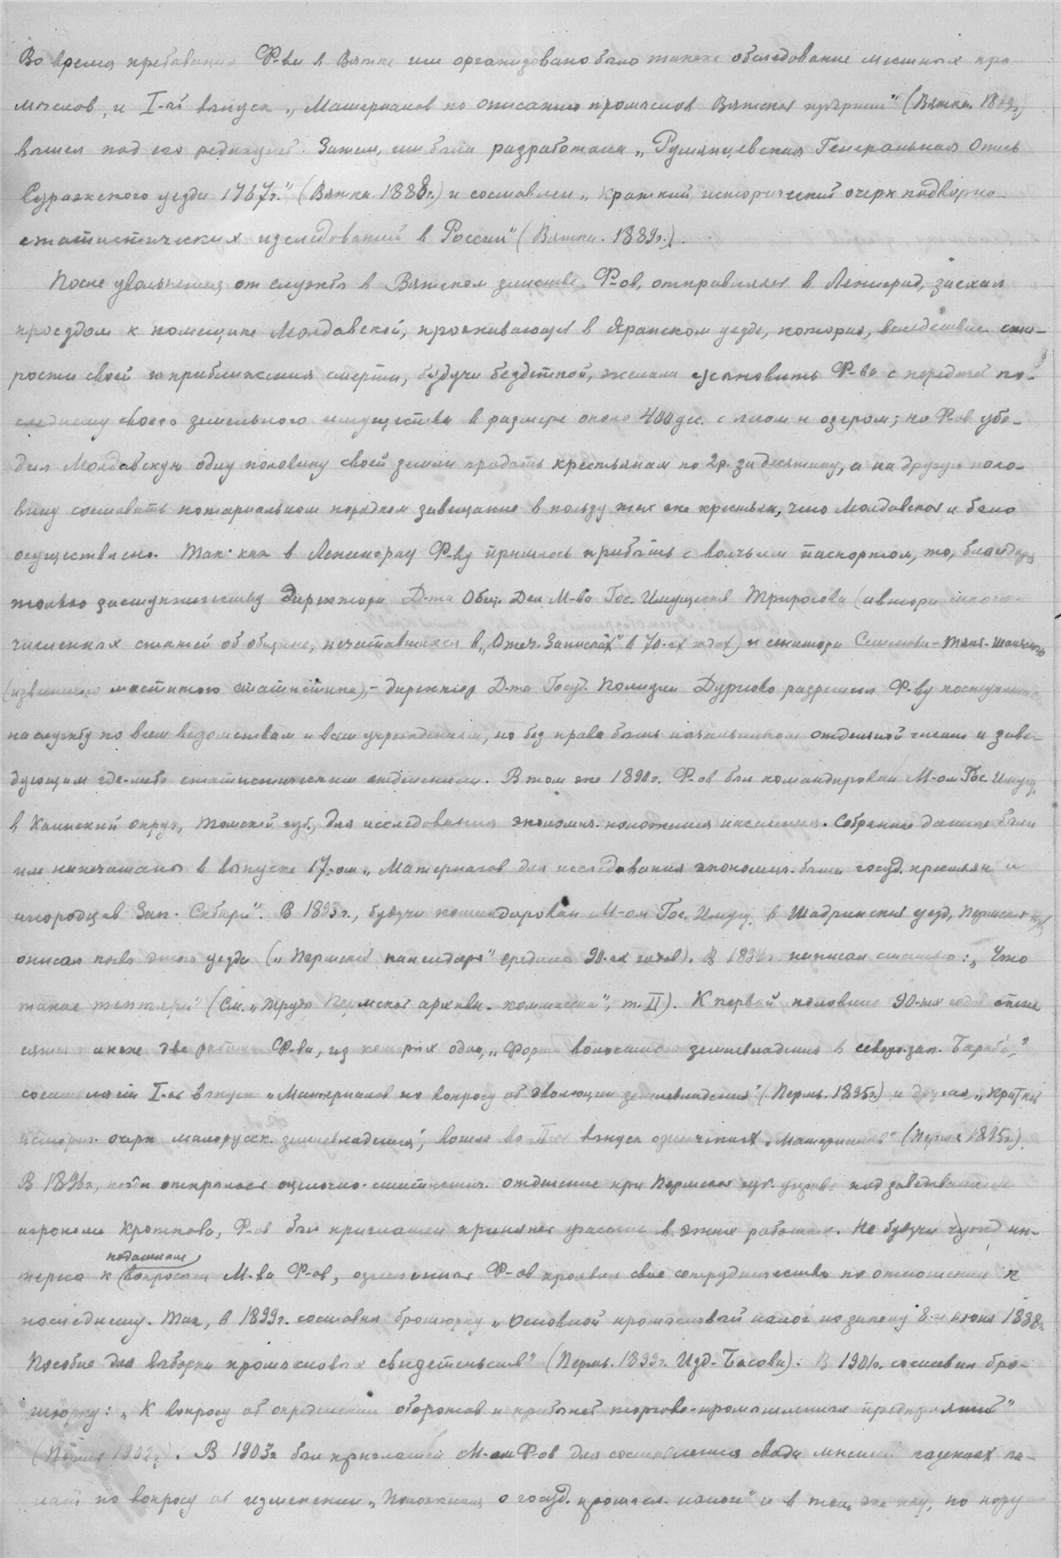 Во время пребывания Ф-ва в Вятке им организовано было также обследование местных про-
мыслов, и I-ый выпуск „Материалов по описанию промыслов Вятской губернии" (Вятка. 1889г.)
вышел под его редакцией. Затем, им была разработана „Румянцевская Генеральная Опись
Суражского уезда 1767г." (Вятка. 1888г.) и составлен „Краткий исторический очерк подворно-
статистических исследований в России" (Вятка. 1889г.).
После увольнения от службы в Вятском земстве, Ф-ов, отправляясь в Ленинград, заехал
проездом к помещице Молдавской, проживающей в Яранском уезде, которая, вследствие ста-
рости своей и приближения смерти, будучи бездетной, желала усыновить Ф-ва с передачей по-
следнему своего земельного имущества в размере около 400 дес. с лесом и озером; но Ф-ов убе-
дил Молдавскую одну половину своей земли продать крестьянам по 2р. за десятину, а на другую поло-
вину составить нотариальным порядком завещание в пользу тех же крестьян, что Молдавской и было
осуществлено. Так как в Ленинград Ф-ву пришлось прибыть с волчьим паспортом, то, благодаря
только заступничеству директора Д-та Общ. Дел М-ва Гос. Имуществ Трирогова (автора много-
численных статей об общине, печатавшихся в „Отеч. Записках" в 70-ых годах) и сенатора Семенова-Тянь-Шанского
(известного маститого статистика),- директор Д-та Госуд. Полиции Дурново разрешил Ф-ву поступление
на службу по всем ведомствам и всем учреждениям, но без права быть начальником отдельной части и заве-
дующим где-либо статистическим отделением. В том же 1890г. Ф-ов был командирован М-ом Гос. Имущ.
в Каинский округ, Томской губ., для исследования экономич. положения населения. Собранные данные были
им напечатаны в выпуске 17-ом „Материалов для исследования экономич. быта госуд. крестьян и
инородцев Зап. Сибири". В 1893г., будучи командирован М-ом Гос. Имущ. в Шадринский уезд, Пермской губ.
описал почвы этого уезда („Пермский календарь" средина 90-ых годов). В написал статью: „Что
такое тептяри" (См. „Труды Пермской архивн. комиссии", т. II). К первой половине 90-ых годов отно-
сятся также две работы Ф-ва, из которых одна, „Формы волостного землевладения в северо-зап. Барабе,"
составляет I-ый выпуск „Материалов по вопросу об эволюции землевладения" (Пермь. 1895г.) и другая „Краткий
историч. очерк малорусск. землевладения", вошла во выпуск означенных „Материалов" (Пермь 1895г.).
В 1896г., когда открылось оценочно-статистич. отделение при Пермской губ. управе под заведыванием
агронома Кроткова, Ф-ов был приглашен принять участие в этих работах. Не будучи чужд ин-
тереса к податным вопросам М-ва Ф-ов, означенный Ф-ов проявил свое сотрудничество по отношению к
последнему. Так, в 1899г. составил брошюру „Основной промысловый налог по закону 8-го июня 1898г.
Пособие для выборки промысловых свидетельств" (Пермь. 1899г. Изд. Басова). В 1901г. составил бро-
шюру: „К вопросу об определении оборотов и прибылей торгово-промышленных предприятий"
(Пермь 1902г.). В 1903г был приглашен М-ом Ф-ов для составления свода мнений казенных па-
лат по вопросу об изменении „Положения о госуд. промысл. налоге" и в том же году, по пору-